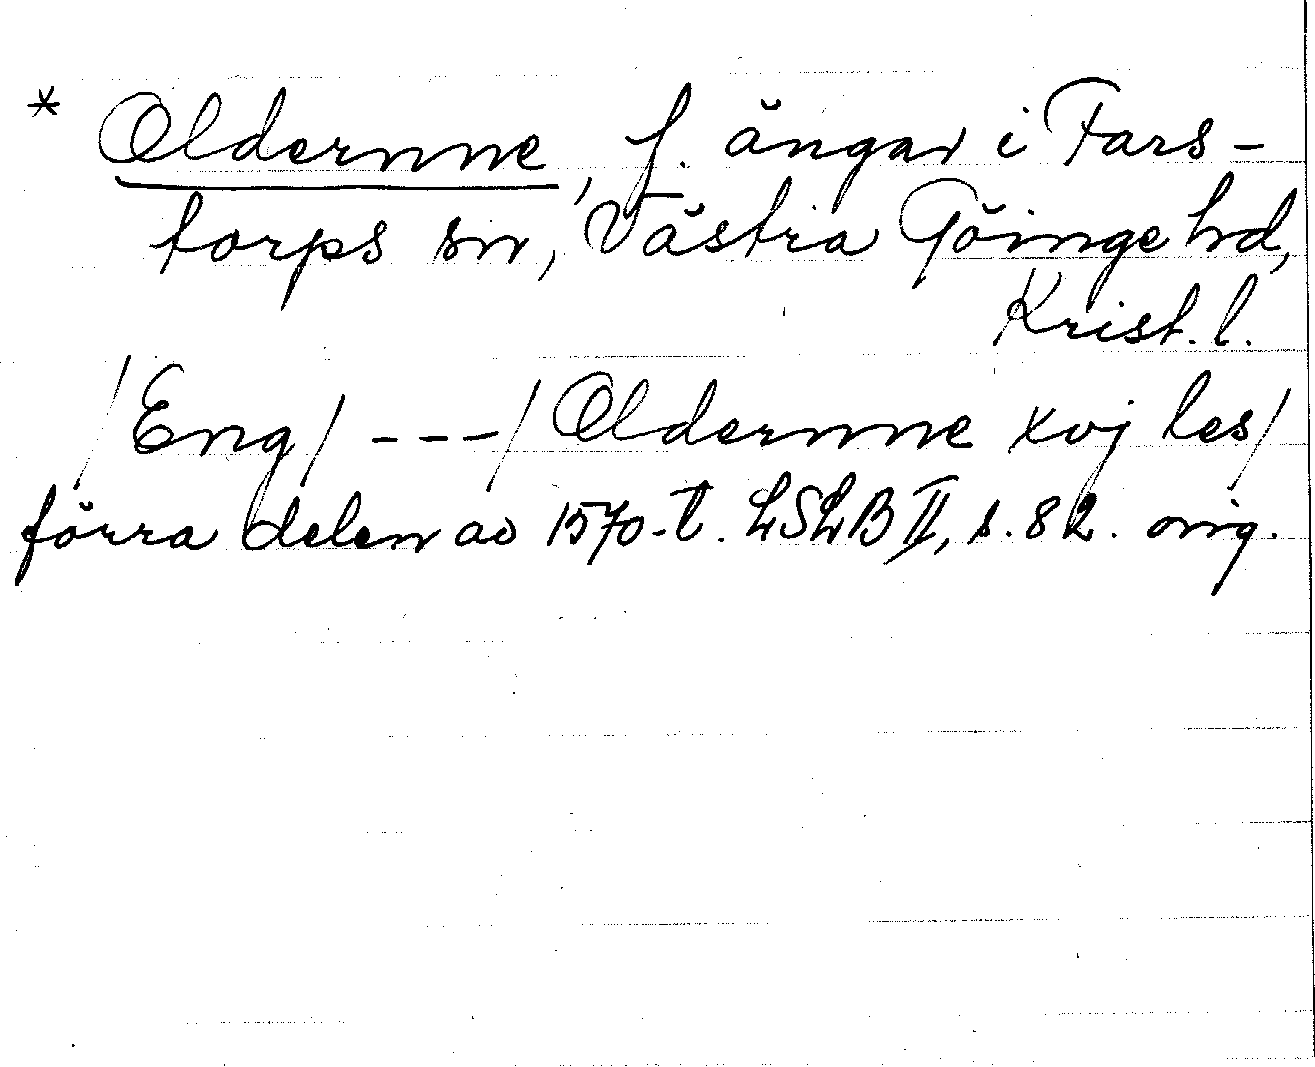 * Oldernne, f. ängar i Fars-
torps sn, Västra Göinge hd,
Krist. l.
/Eng/ ---/Oldernne xvj les/
förra delen av 1570-t. LSLB II, s. 82. orig.